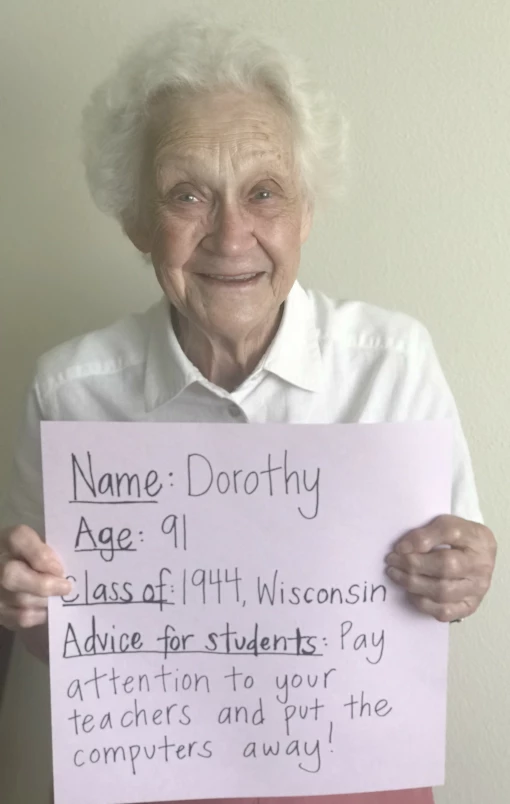 Name: Dorothy
Age: 91
Class of: 1944, Wisconsin
Advice for students: Pay
attention to your
teachers and put the
computers away!